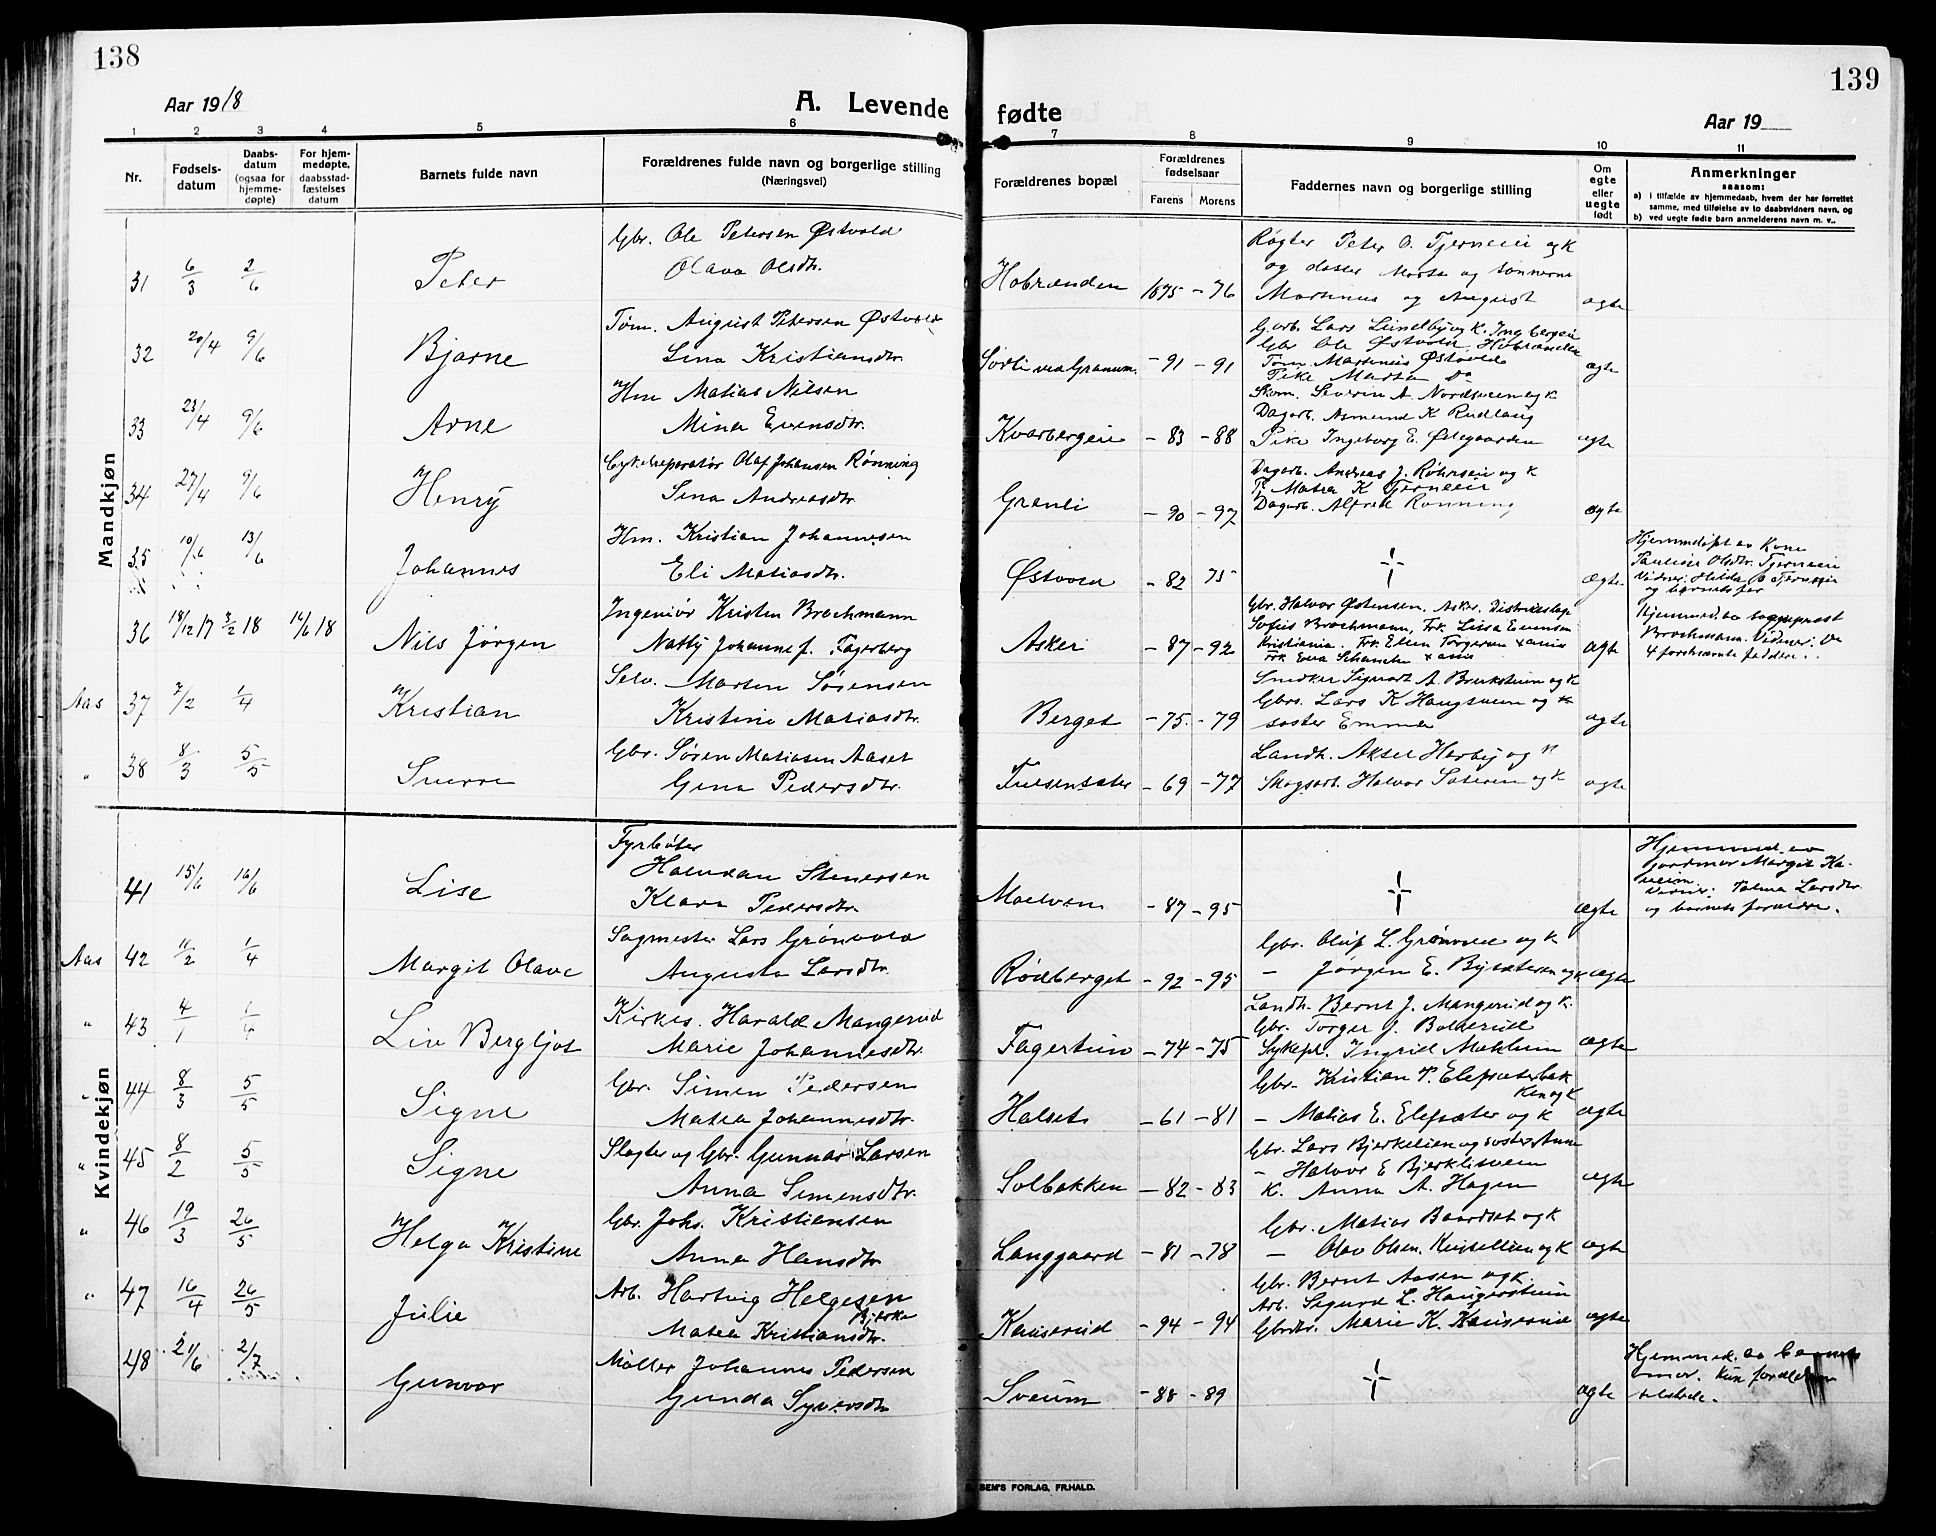 138
139
Aar 1918
A. Levende
fødte
Aar 19
1
2
3
4
5
6
7
8
9
10
11
Nr.
Fødsels-
datum
Daabs-
datum
(ogsaa for
hjemme-
døpte)
For hjem-
medøpte,
daabsstad-
fæstelses
datum
Barnets fulde navn
Forældrenes fulde navn og borgerlige stilling
(Næringsvei)
Forældrenes bopæl
Forældrenes
fødselsaar
Farens
Morens
Faddernes navn og borgerlige stilling
Om
egte
eller
uegte
født
Anmerkninger
saasom:
a) i tilfælde av hjemmedaab, hvem der har forrettet
samme, med tilføielse av to daabsvidners navn, og
b) ved uegte fødte barn anmelderens navn m. v..
Mandkjøn
31 6/3 2/6 Peter
Gbr. Ole Petersen Østvold
Olava Olsdtr.
Hobrænden 1875 - 76
Røgter Peter O. Tjerneiei og k
og datter Marta og sønnerne
Martinus og August
ægte
32 20/4 9/6 Bjarne
Tøm. August Petersen Østvold
Lina Kristiansdtr.
- 91 - 91
G.arb. Lars Lundby og k. Ingebergeie
Gbr Ole Østvold Hobrænden
Tøm. Martinius Østvold
Pike Marta Do
ægte
33 23/4 9/6 Arne
Hm Matias Nilsen
Mina Evensdtr.
Kvarbergeie - 83 - 88
Skom. Severin A. Nordsveen og k
Dagarb. Asmund K Rudlang
Pike Ingeborg E. Ødegaarden
ægte
34 27/4 9/6 Henry
Cykelreparatør Olaf Johansen Rønning
Lina Andreasdtr.
Grenli - 90 - 97
Dagarb. Andreas J. Røhneeie og k
P. Matea K Tjerneeie
Dagarb. Alfred Rønning
ægte
35 10/6 13/6 Johannes
Hm. Kristian Johannesen
Eli Matiasdtr.
Østvold - 82 75
ægte
Hjemmedøpt av Kone
Pauline Olsdtr. Tjerneeie
Vidner: Hilda O Tjerneeie
og barnets far
36 18/12 17 3/2 18 16/6 18 Nils Jørgen
Ingeniør Kristen Brochmann
Natty Johanne f. Fagerberg
Asker - 87 - 92
Gbr. Halvor Østensen, Asker. Distriktslæge
Sofus Brochmann, Frk. Lissa Evensen
Kristiania. Frk. Ellen Torgersen x ania
Frk Eva Schanche x ania
ægte
Hjemmed. av sogneprest
Brochmann. Vidner: De
4 forstnævnte faddere.
Aas 37 7/2 1/4 Kristian
Selv. Marten Sørensen
Kristine Matiasdtr.
Berget - 75 - 79
Snedker Sigvart A. Bruksteim og k
Gbrs. Lars K Haugsveen og
søster Emma
ægte
" 38 8/3 5/5 Sverre
Gbr. Søren Matiasen Aaset
Gina Pedersdtr.
- 69 - 77
Landh. Aksel Hærby og k
Skogsarb. Halvor Sæteren og k
ægte
Kvindekjøn
41 15/6 16/6 Lise
Fyrbøter
Halvdan Stenersen
Klara Pedersdtr.
Moelven - 87 - 95
ægte
Hjemmed. av
jordmor Margit Ka-
veim.
Vidner: Palma Larsdtr.
og barnets forældre.
Aas 42 11/2 1/4 Margit Olave
Sagmester Lars Grønvold
Augusta Larsdtr.
Rødberget - 92 - 95
Gbr. Oluf L. Grønvold og k
- Jørgen E. Bysæteren og k
ægte
" 43 4/1 1/4 Liv Bergljot
Kirkes. Harald Mangerud
Marie Johannesdtr.
Fagertun - 74 - 75
Landh. Bernt J. Mangerud og k.
Gbr. Torger J. Bollerud
Sykepl. Ingrid Moklein
ægte
" 44 8/3 5/5 Signe
Gbr. Simen Pedersen
Matea Johannesdtr.
Halset - 61 - 81
Gbr. Kristian P. Elefsæterbak
ken og k
- Matias E. Elefsæter og k
ægte
" 45 8/2 5/5 Signe
Slagter og Gbr. Gunnar Larsen
Anna Simensdtr.
Solbakken - 82 - 83
Gbr. Lars Bjerkelien og søster Anna
- Halvor E Bjerklisveen
K. Anna A. Hagen
ægte
" 46 19/3 26/5 Helga Kristine
Gbr. Johs. Kristiansen
Anna Hansdtr
Langgaard - 81 - 78
Gbr. Matias Baardset og k
- Olav Olsen, og k
ægte
" 47 16/4 26/5 Julie
Arb. Hartvig Helgesen
Bjerke
Matea Kristiansdtr.
Kauserud - 94 - 94
Gbr. Bernt Aasen og k.
Arb. Sigurd L. Haugerstuen
Gbrdtr. Marie K. Kauserud
ægte
48 21/6 2/7 Gunvor
Møller Johannes Pedersen
Gunda Syversdtr
Sveum - 88 - 89
ægte
Hjemmed. av barnets
mor. Kun forældrene
tilstede.
SEM'S FORLAG, FR.HALD.